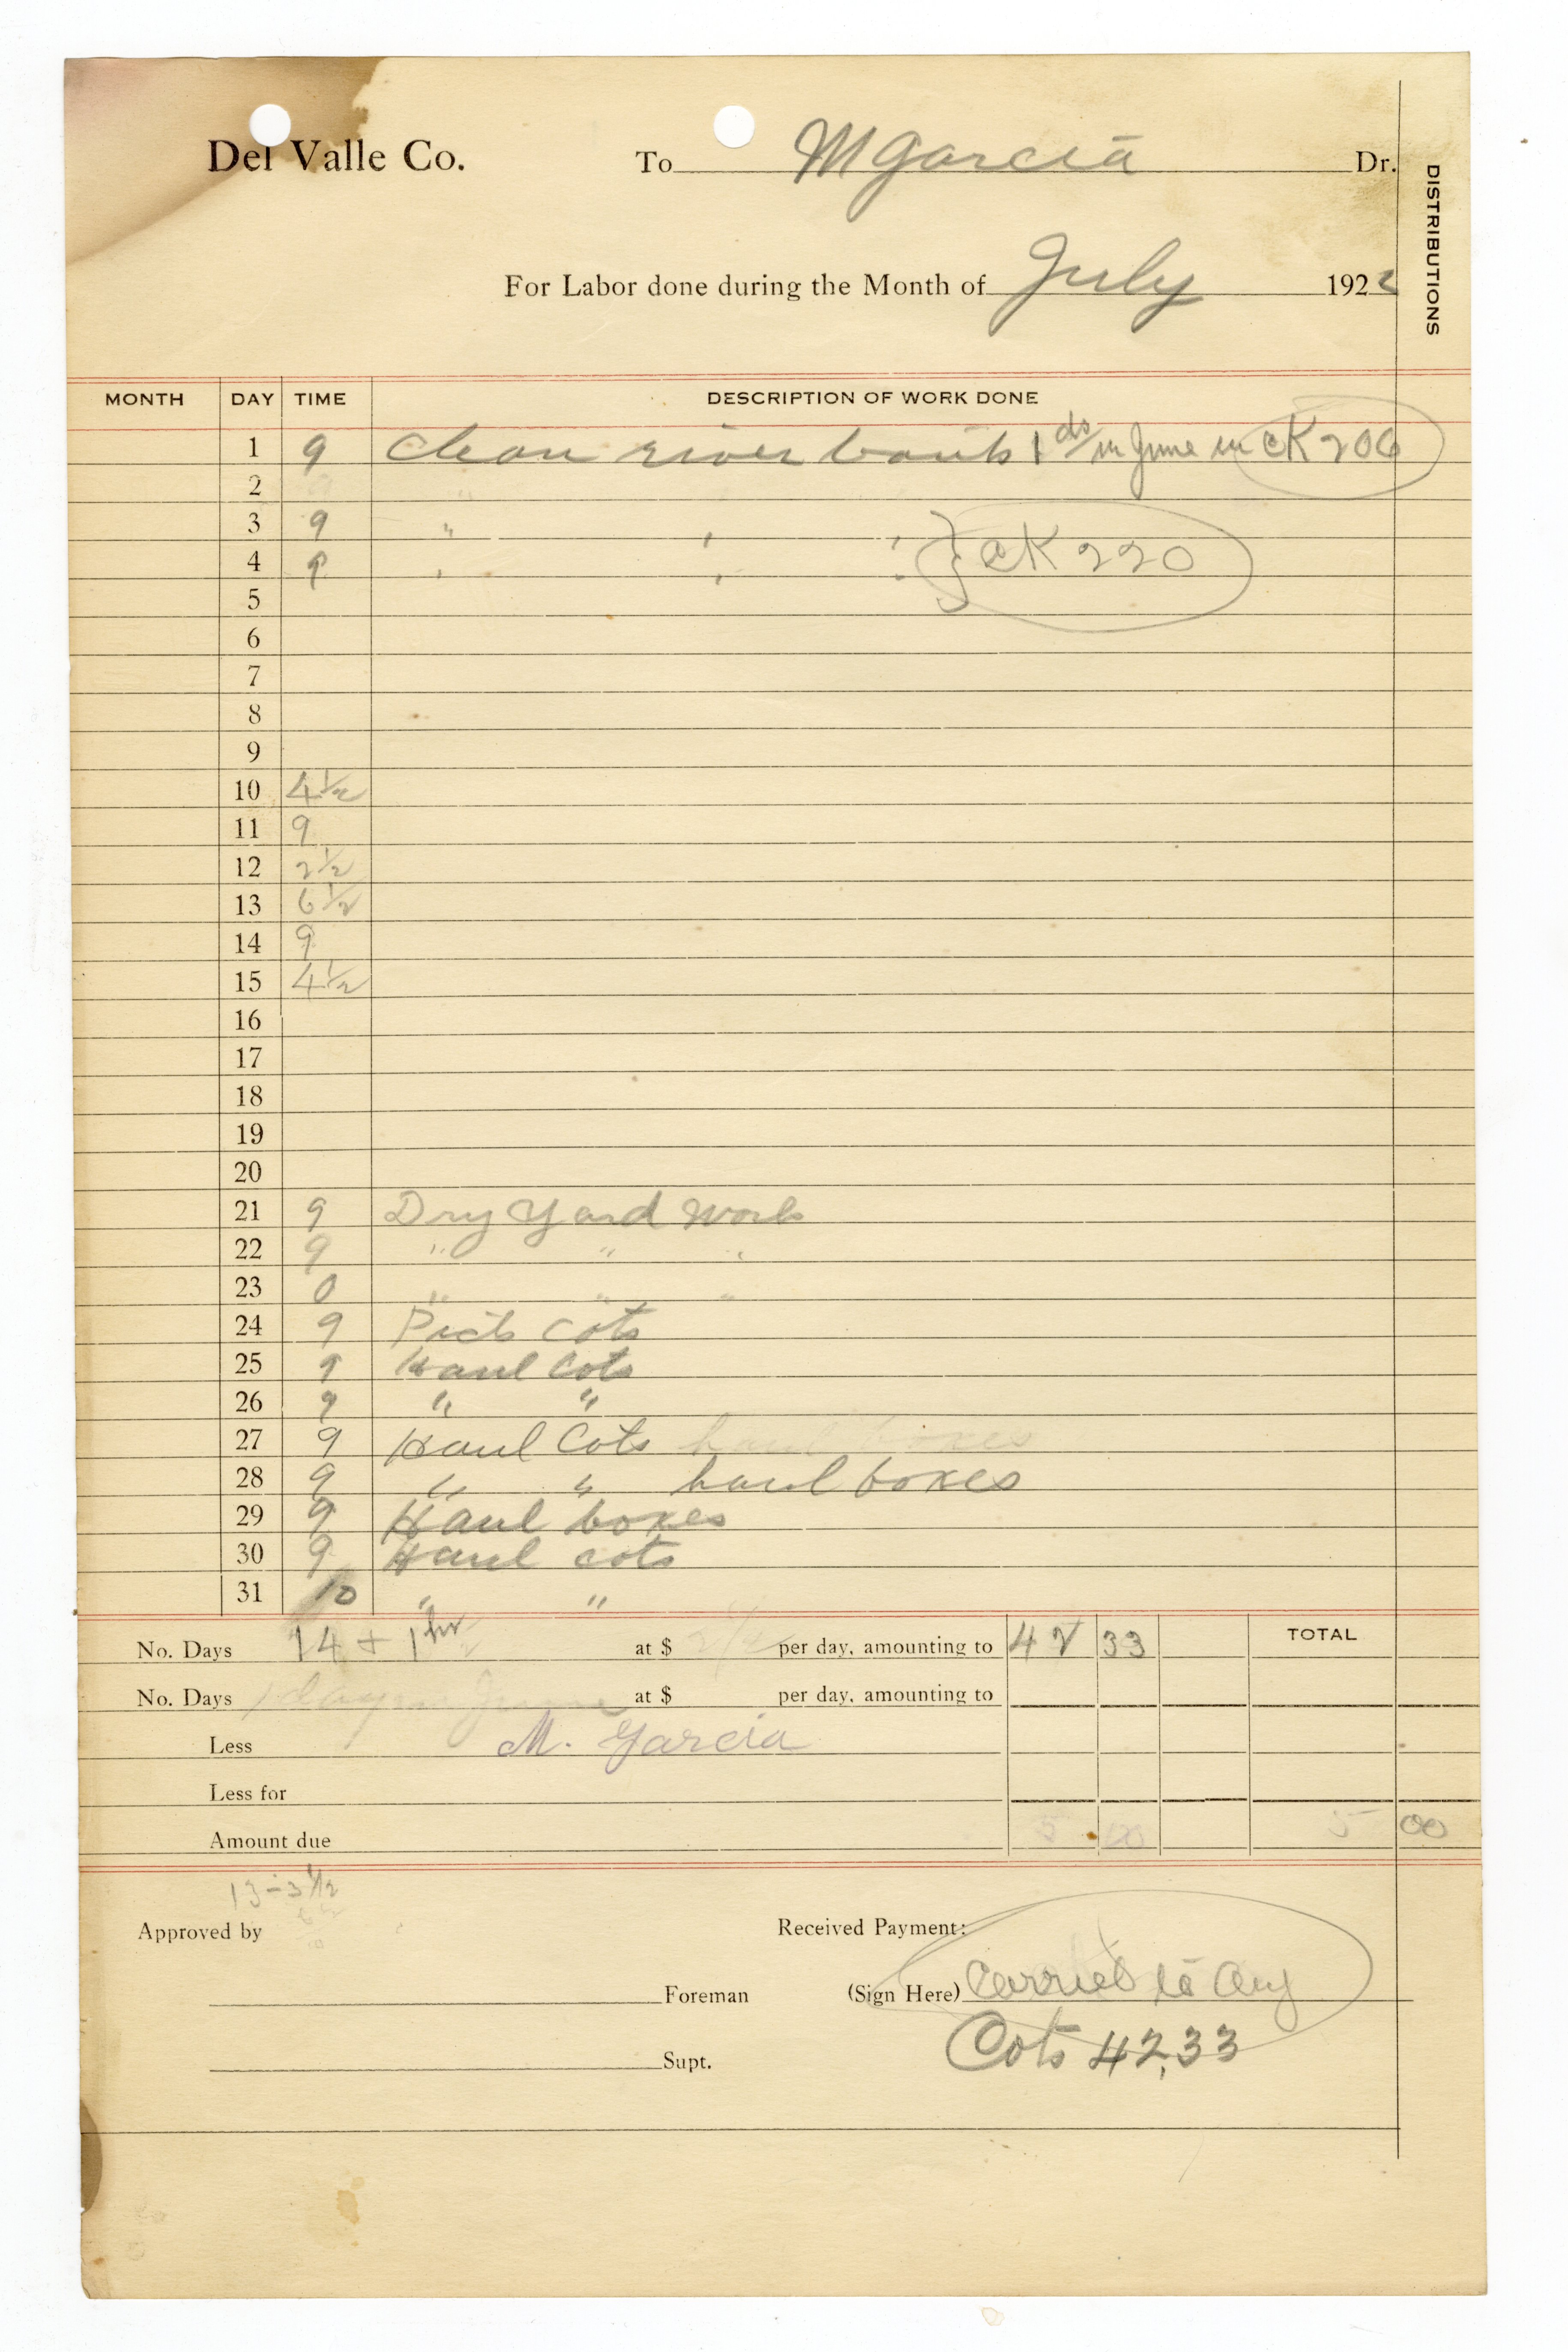 Del Valle Co. To M Garcia Dr.
DISTRIBUTIONS
For Labor done during the Month of July 1922
MONTH DAY TIME DESCRIPTION OF WORK DONE
1 9 Clean river bank 1 ds in June in CK 206
2 " "
3 9 " " "
4 9 " " " } CK 220
5
6
7
8
9
10 4 1/2
11 9
12 2 1/2
13 6 1/2
14 9
15 4 1/2
16
17
18
19
20
21 9 Dry Yard Work
22 9 " " "
23 0 " " "
24 9 Pick Cots
25 9 Haul Cots
26 9 " "
27 9 Haul Cots haul boxes
28 9 " " haul boxes
29 9 Haul boxes
30 9 Haul cots
31 10 " "
No. Days 14 + 1 hr at $ per day, amounting to 42 33 TOTAL
No. Days 1 day in June at $ per day, amounting to
Less M. Garcia
Less for
Amount due 5 00 5 00
13-3 1/2
Approved by Received Payment:
Foreman (Sign Here) Carried to Aug
Cots 42.33
Supt.